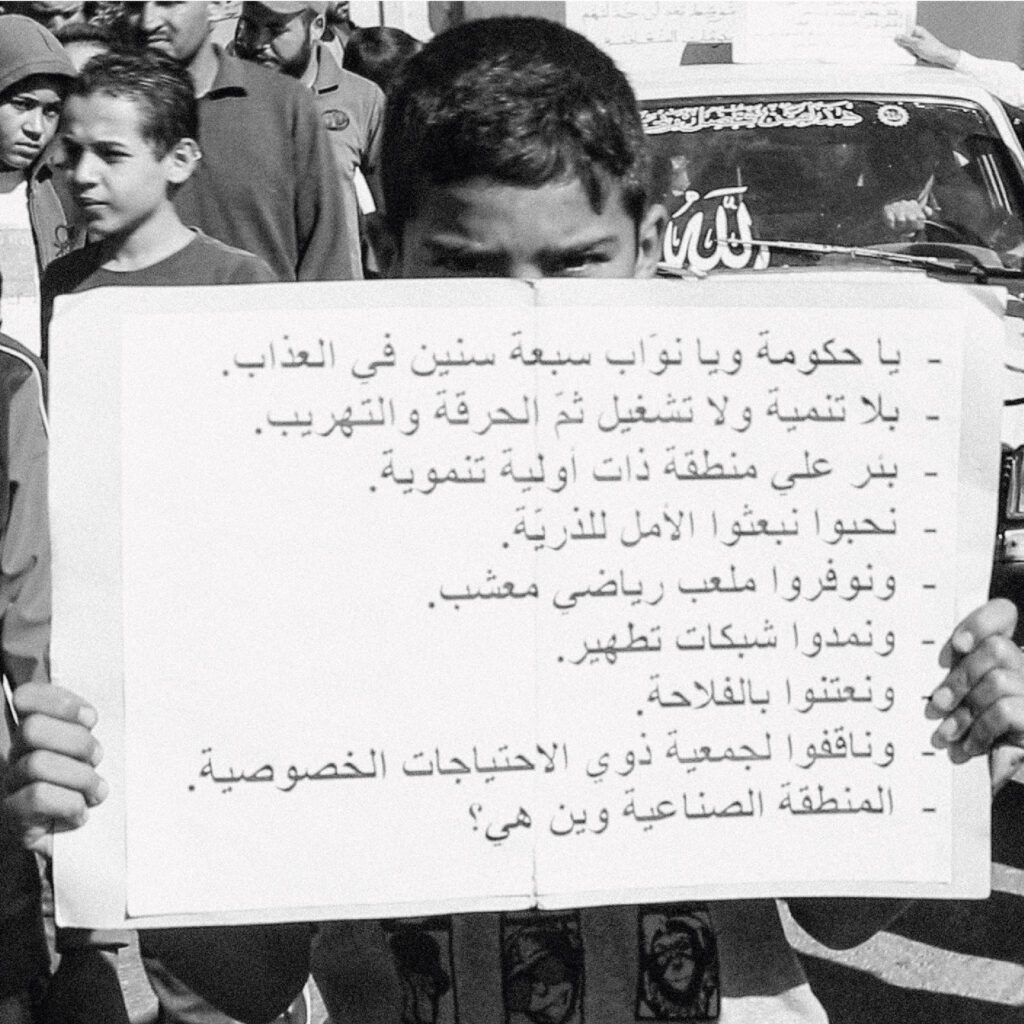 - يا حكومة ويا نوّاب سبعة سنين في العذاب.
- بلا تنمية ولا تشغيل ثمّ الحرقة والتهريب.
- بئر علي منطقة ذات أولية تنموية.
- نحبوا نبعثوا الأمل للذريّة.
- ونوفروا ملعب رياضي معشب.
- ونمدوا شبكات تطهير.
- ونعتنوا بالفلاحة.
- وناقفوا لجمعية ذوي الاحتياجات الخصوصية.
- المنطقة الصناعية وين هي؟
الله